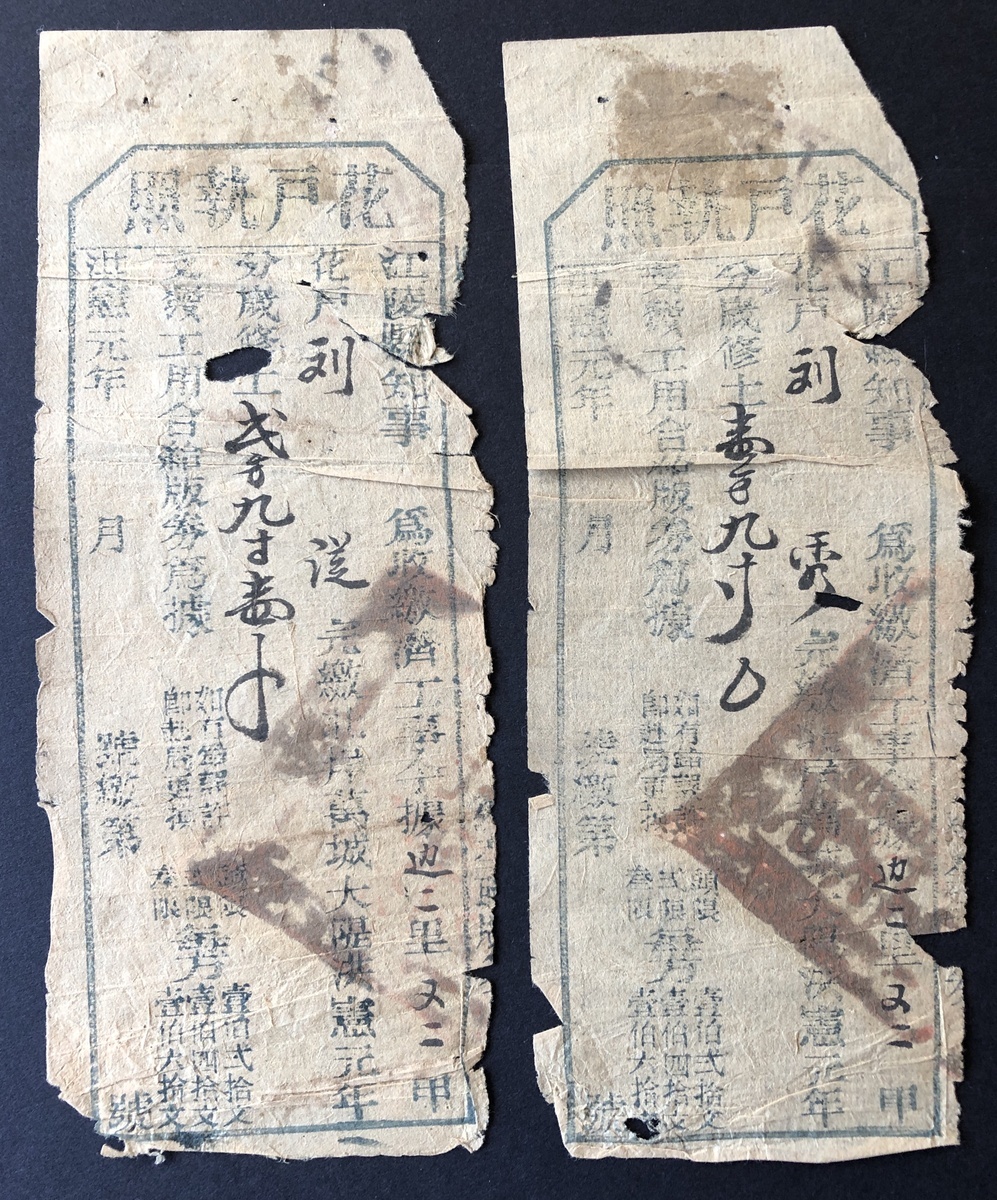 花戶執照
江陵縣知事
爲收繳濟工事今據边二里又二甲
花戶刘
從
完繳北岸萬城大隄洪憲元年
分歲修土
弍方九寸壹
如有錯誤許
即赴局更換
頭限
弍限
叁限
每方
壹伯弍拾文
壹伯四拾文
壹伯六拾文
發工用合給版券爲據
洪憲元年
月
號繳第
號
花戶執照
江陵縣知事
爲收繳濟工事今據边二里又二甲
花戶刘
完繳北岸萬城大隄洪憲元年
分歲修土
壹方九寸
如有錯誤許
即赴局更換
頭限
弍限
叁限
每方
壹伯弍拾文
壹伯四拾文
壹伯六拾文
發工用合給版券爲據
洪憲元年
月
號繳第
號